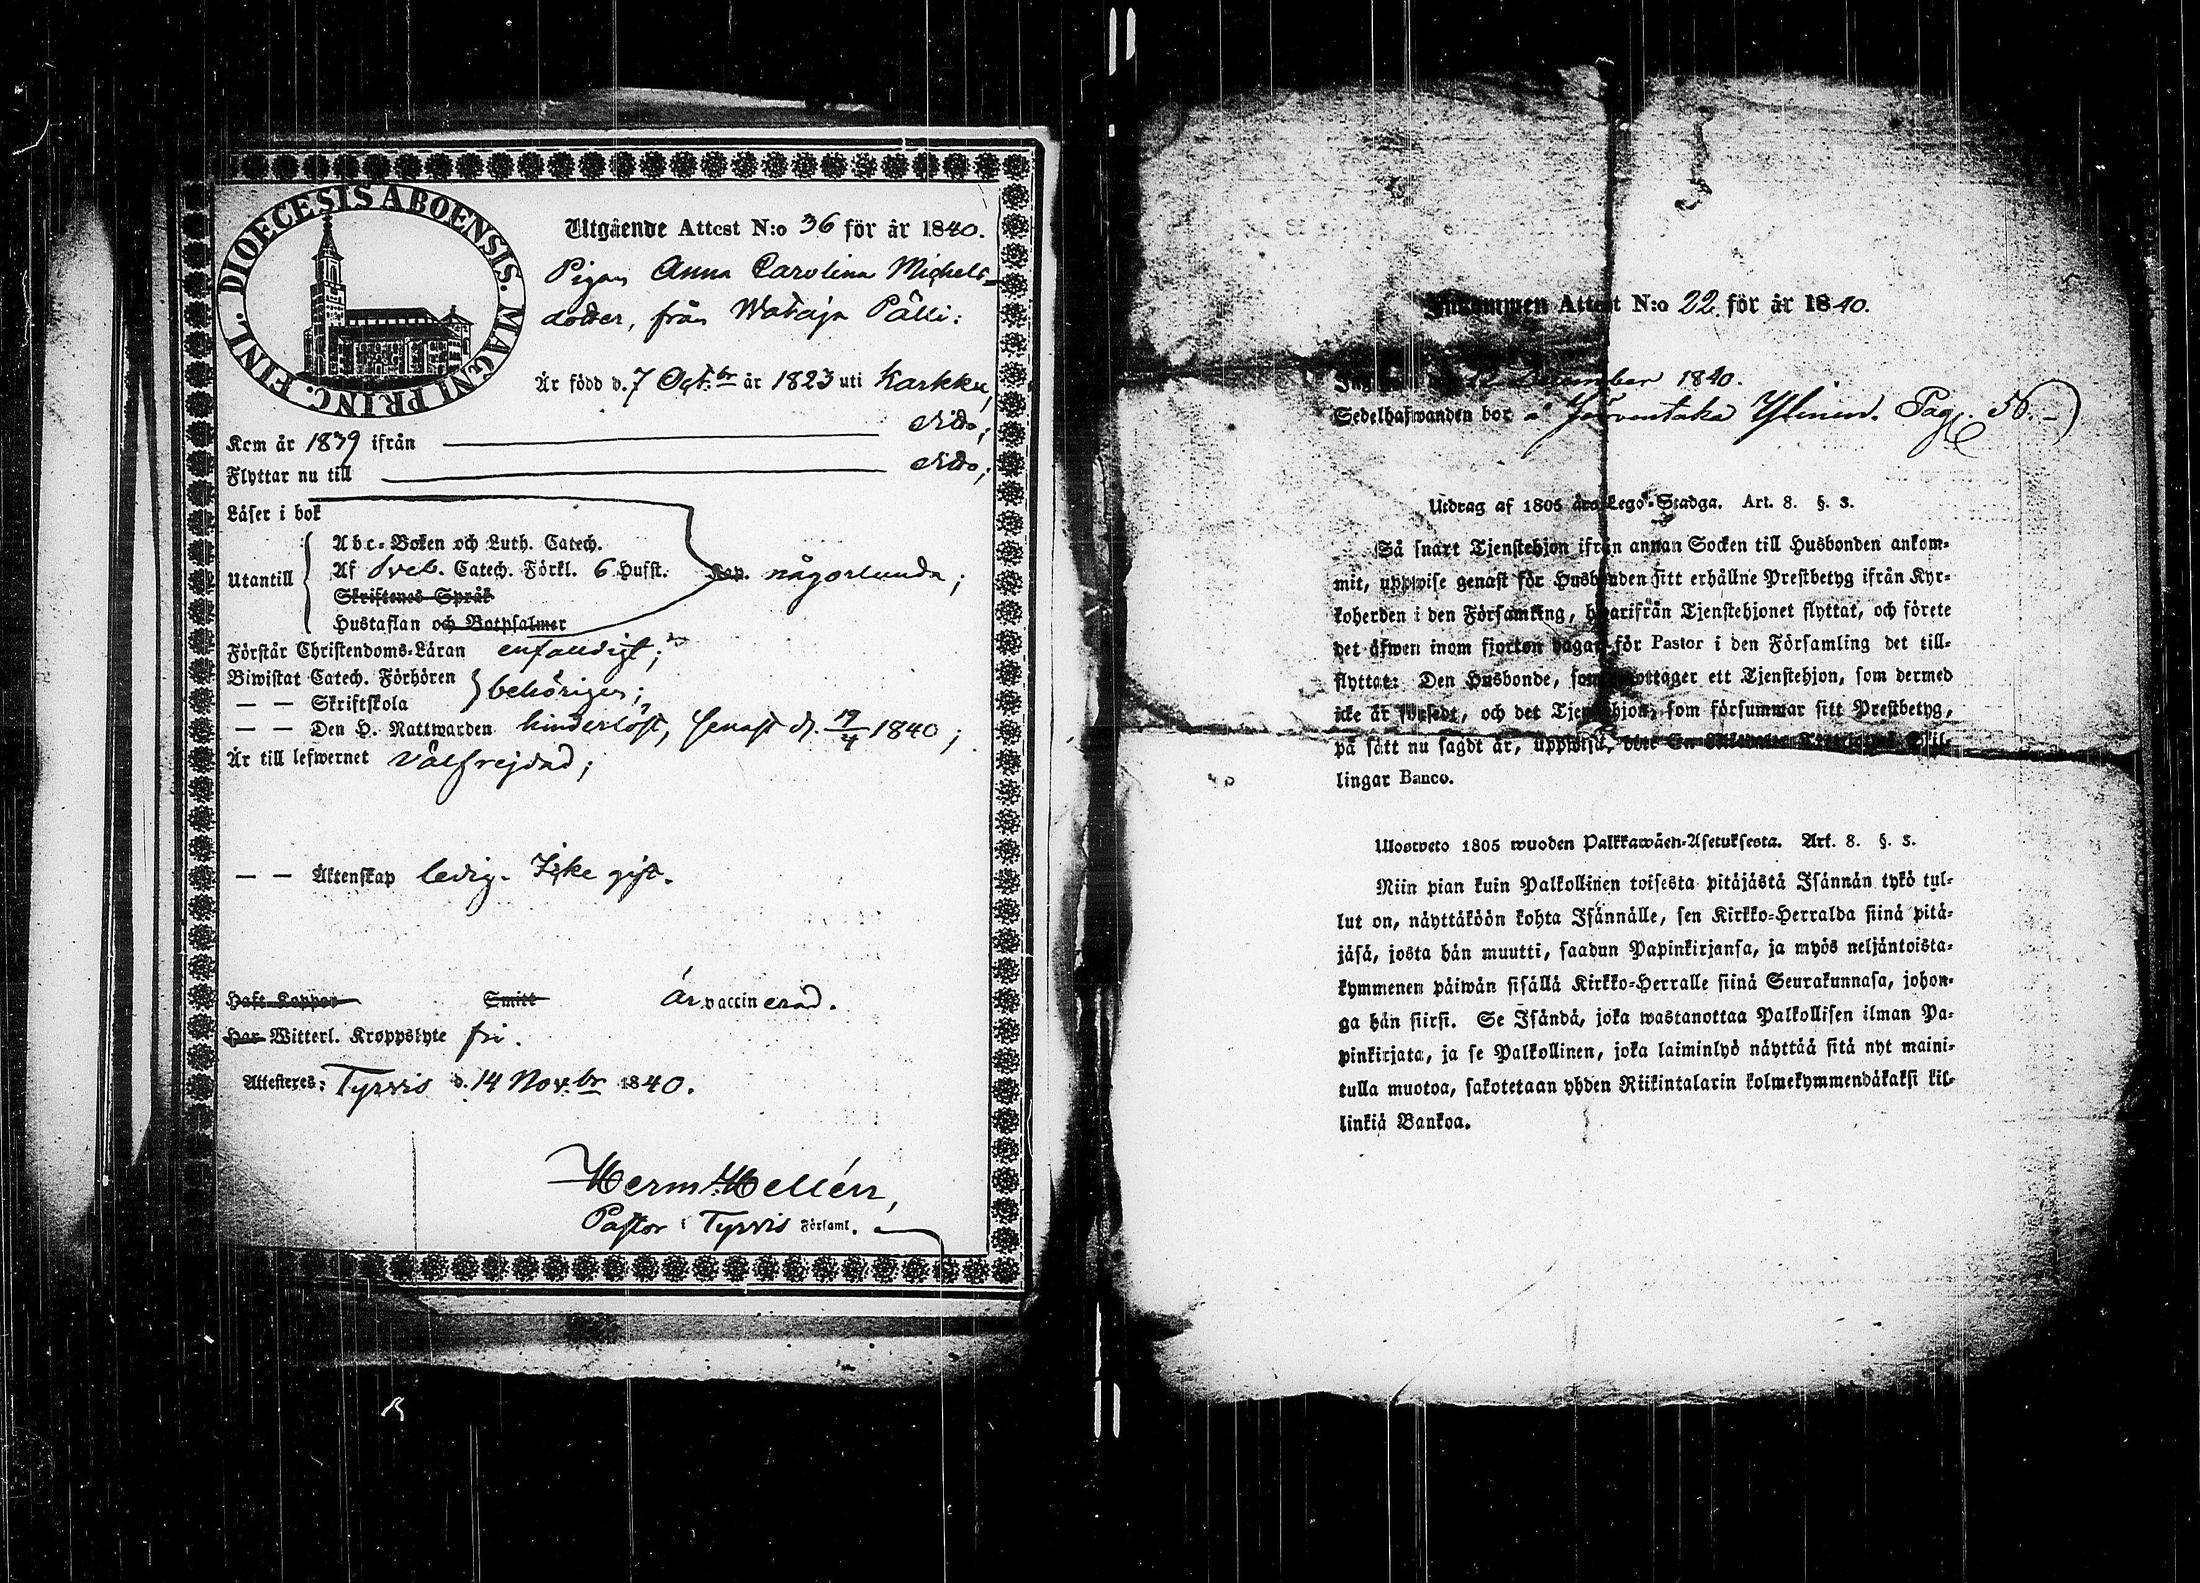 DIOECESIS ABOENSIS. MAGNI PRINC. FINL.
Utgående Attest N:o 36 för år 1840.
Pigan Anna Carolina Michels-
dotter, från Wataja Pälli:
Är född d. 7 Oct:br år 1823 uti Karkku,
Kom år 1839 ifrån dito;
Flyttar nu till dito;
Läser i bok
Utantill
Abc-Boken och Luth. Catech.
Af Sveb. Catech. Förkl. 6 Hufst. Kap. någorlunda;
Skriftenes Språk
Hustaflan och Botpsalmer
Förstår Christendoms-Läran enfaldigt;
Biwistat Catech. Förhören
— — Skriftskola behörigen;
— — Den H. Nattwarden hinderlöst, senast d. 19/4 1840;
Är till lefwernet välfrejdad;
— — Äktenskap ledig. Icke gift.
Haft Koppor Smitt är vaccinerad.
Har Witterl. Kroppslyte fri.
Attesteres: Tyrvis d. 14 Nov:br 1840.
Herm. Hellén,
Pastor i Tyrvis Församl.
Inkommen Attest N:o 22 för år 1840.
December 1840.
Sedelhafwanden bor å Jarventaka Ylinen. Pag. 56.
Utdrag af 1805 års Lego-Stadga. Art. 8. §. 3.
Så snart Tjenstehjon ifrån annan Socken till Husbonden ankom-
mit, uppwise genast för Husbonden sitt erhållne Prestbetyg ifrån Kyr-
koherden i den Församling, hwarifrån Tjenstehjonet flyttat, och förete
det äfwen inom fjorton dagar för Pastor i den Församling det till-
flyttat: Den Husbonde, som mottager ett Tjenstehjon, som dermed
icke är försedt, och det Tjenstehjon, som försummar sitt Prestbetyg,
på sätt nu sagdt är, uppwisa, böte En Skil-
lingar Banco.
Ulosweto 1805 wuoden Palkkawäen-Asetuksesta. Art. 8. §. 3.
Niin pian kuin Palkollinen toisesta pitäjästä Isännän tykö tul-
lut on, näyttäköön kohta Isännälle, sen Kirkko-Herralda siinä pitä-
jäsä, josta hän muutti, saadun Papinkirjansa, ja myös neljäntoista-
kymmenen päiwän sisällä Kirkko-Herralle siinä Seurakunnasa, johon-
ga hän siirsi. Se Isändä, joka wastanottaa Palkollisen ilman Pa-
pinkirjata, ja se Palkollinen, joka laiminlyö näyttää sitä nyt maini-
tulla muotoa, sakotetaan yhden Riikintalarin kolmekymmendäkaksi kil-
linkiä Bankoa.